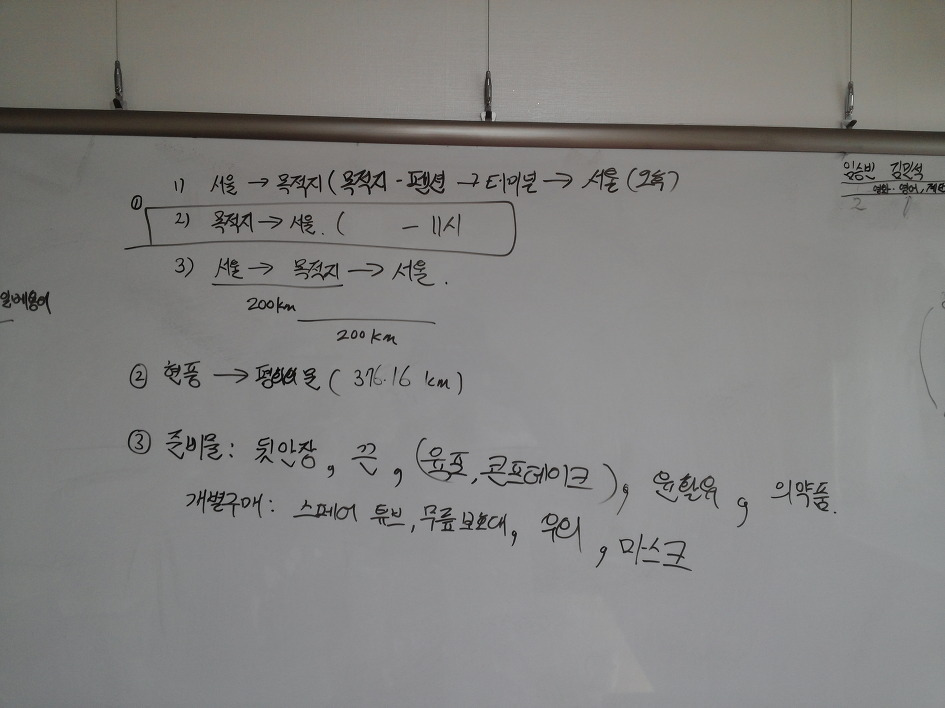 1) 서울 → 목적지 (목적지 - 펜션 → 터미널 → 서울 (오후)
① 2) 목적지 → 서울. ( - 11시
3) 서울 → 목적지 → 서울.
200km
200km
② 현풍 → ( 376.16 km )
③ 준비물 : 뒷안장, 끈, (육포, 콘프레이크), 윤활유, 의약품.
개별구매 : 스페어 튜브, 무릎보호대, 우의, 마스크
임승빈 김민석
영화·영어,
2 1